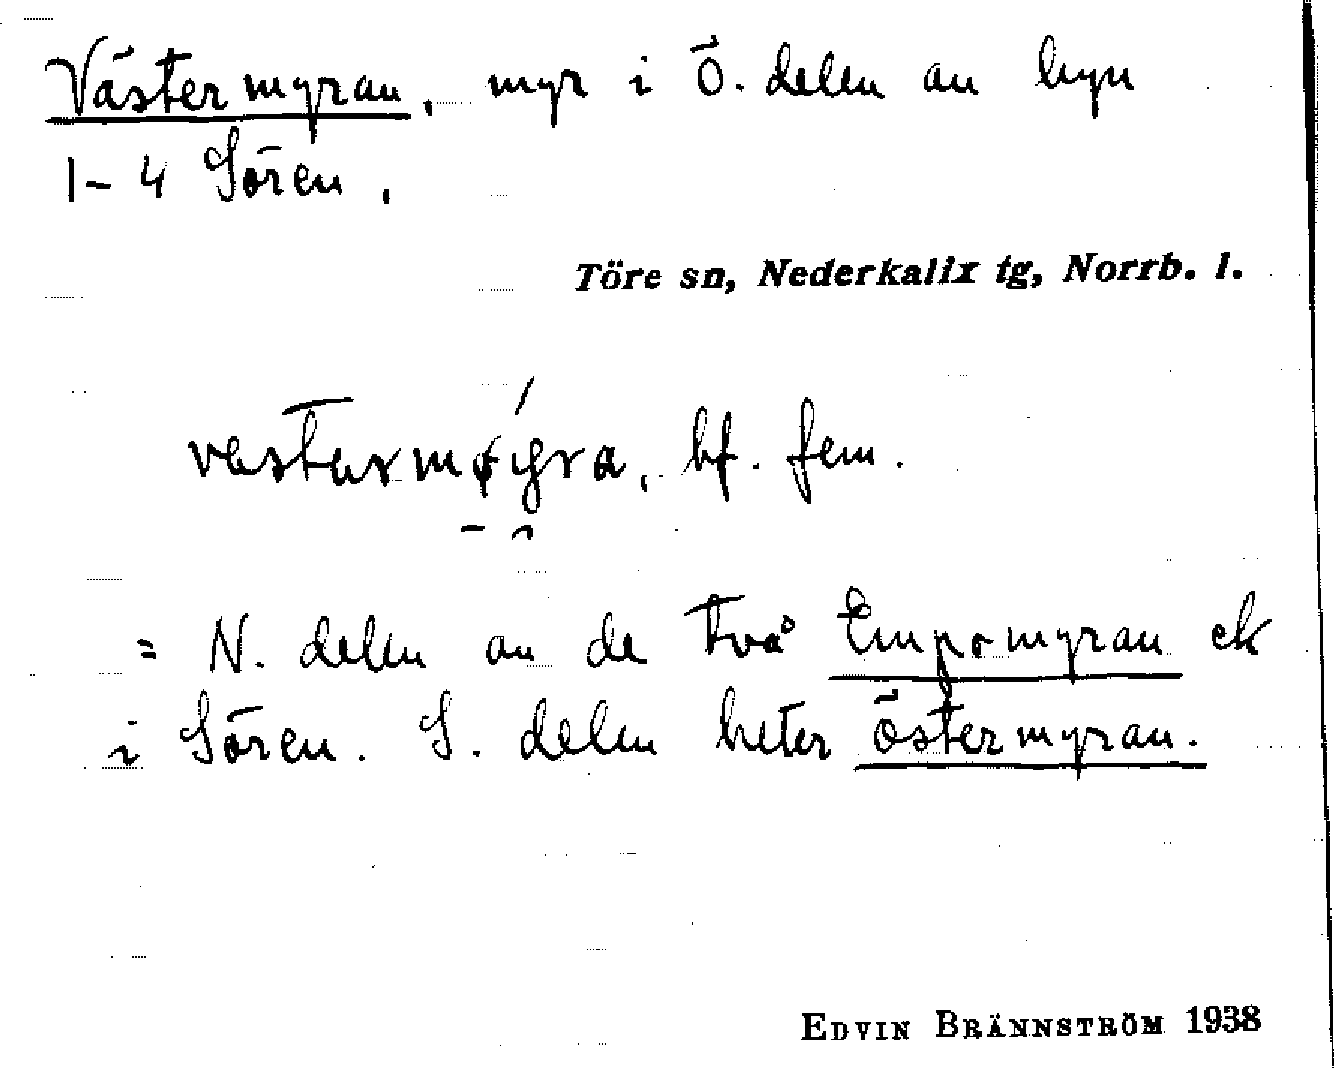 Västermyran, myr i Ö. delen av byn
1-4 Sören.
Töre sn, Nederkalix tg, Norrb. l.
bf. fem.
= N. delen av de två Empomyran ek
i Sören. S. delen heter östermyran.
EDVIN BRÄNNSTRÖM 1938